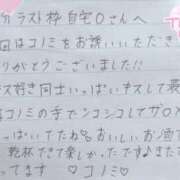 分 ラスト枠 自宅Oさんへ
回はコノミをお誘いいただき
りがとうございました!!
ス好き同士いっぱいキスして最
コノミの手でシコシコしてザーメ
っぱいでてたね おいしいお酒で
乾杯できて楽しかったですまた
ってます ♡コノミ♡